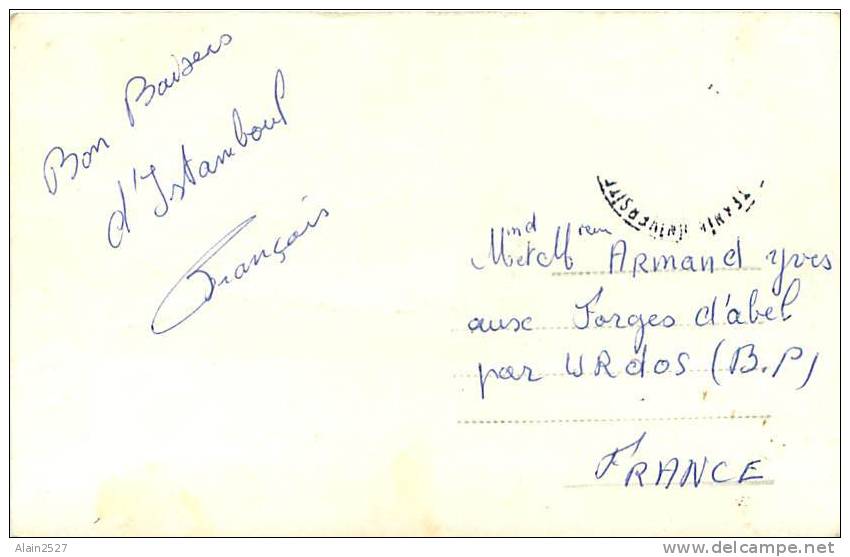 Bon Baisers
d'Istamboul
François
TEKNIK ÜNIVERSITE
Armand Yves
aux Forges d'abel
par URdos (B.P)
FRANCE
Alain2527
delcampe.net